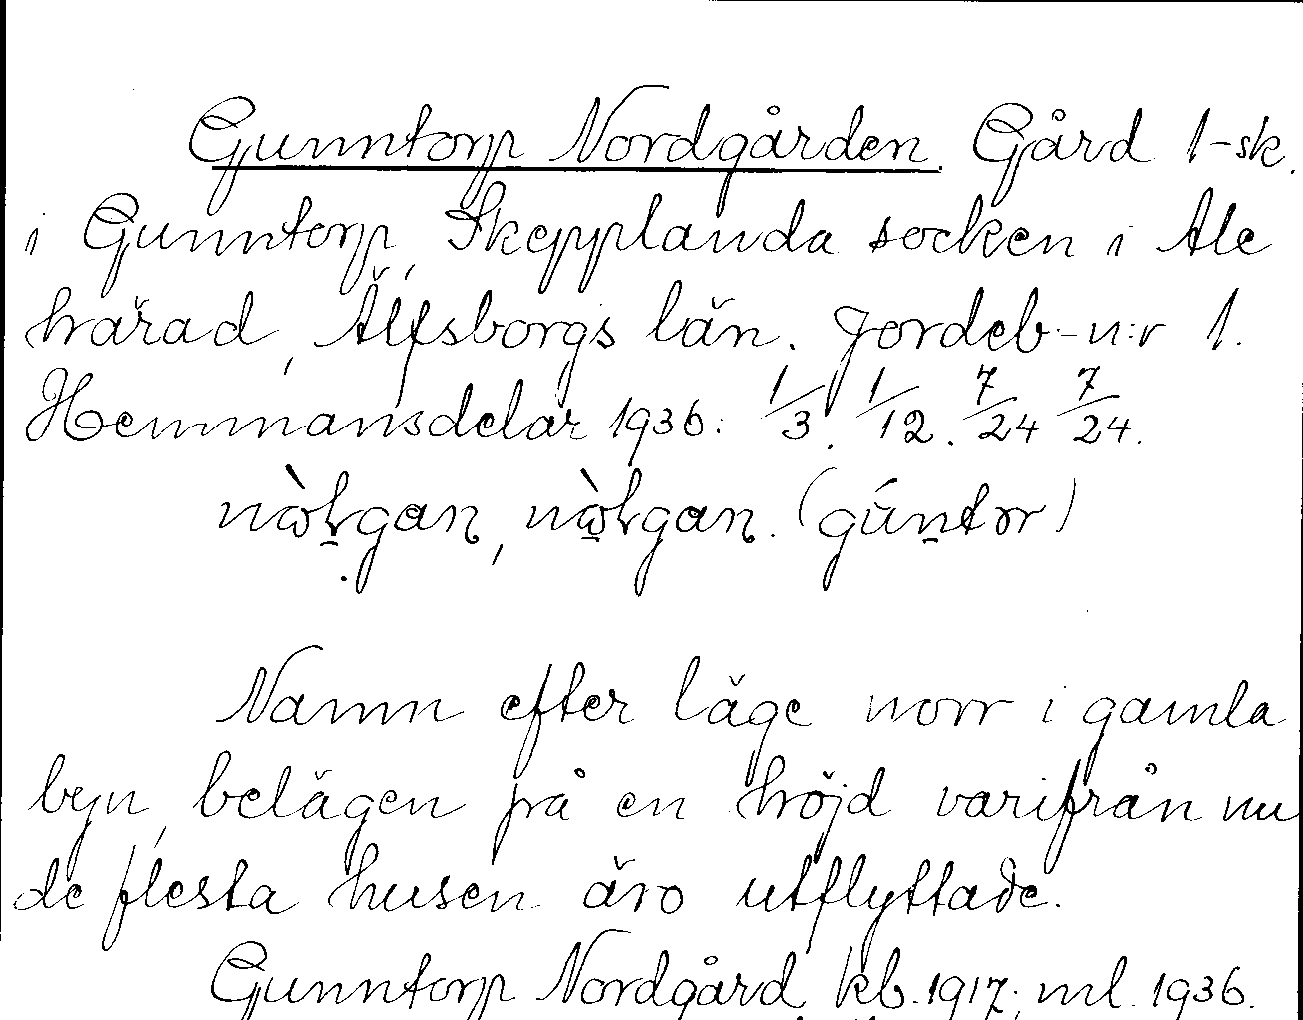 Gunntorp Nordgården. Gård 1-sk.
i Gunntorp, Skepplanda socken i Ale
härad, Älfsborgs län. Jordeb.-n:r 1.
Hemmansdelar 1936: 1/3. 1/12. 7/24 7/24.
(gúntorr)
Namn efter läge norr i gamla
byn, belägen på en höjd varifrån nu
de flesta husen äro utflyttade.
Gunntorp Nordgård kb. 1917; ml. 1936.